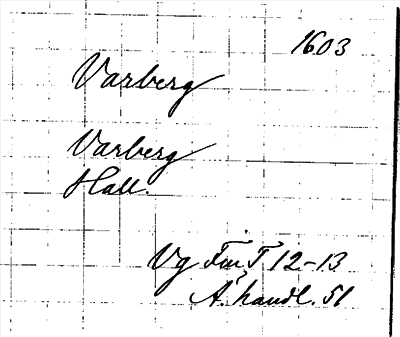 1603
Varberg
Varberg
Hall.
Vg Fm T 12-13
A. handl. 51